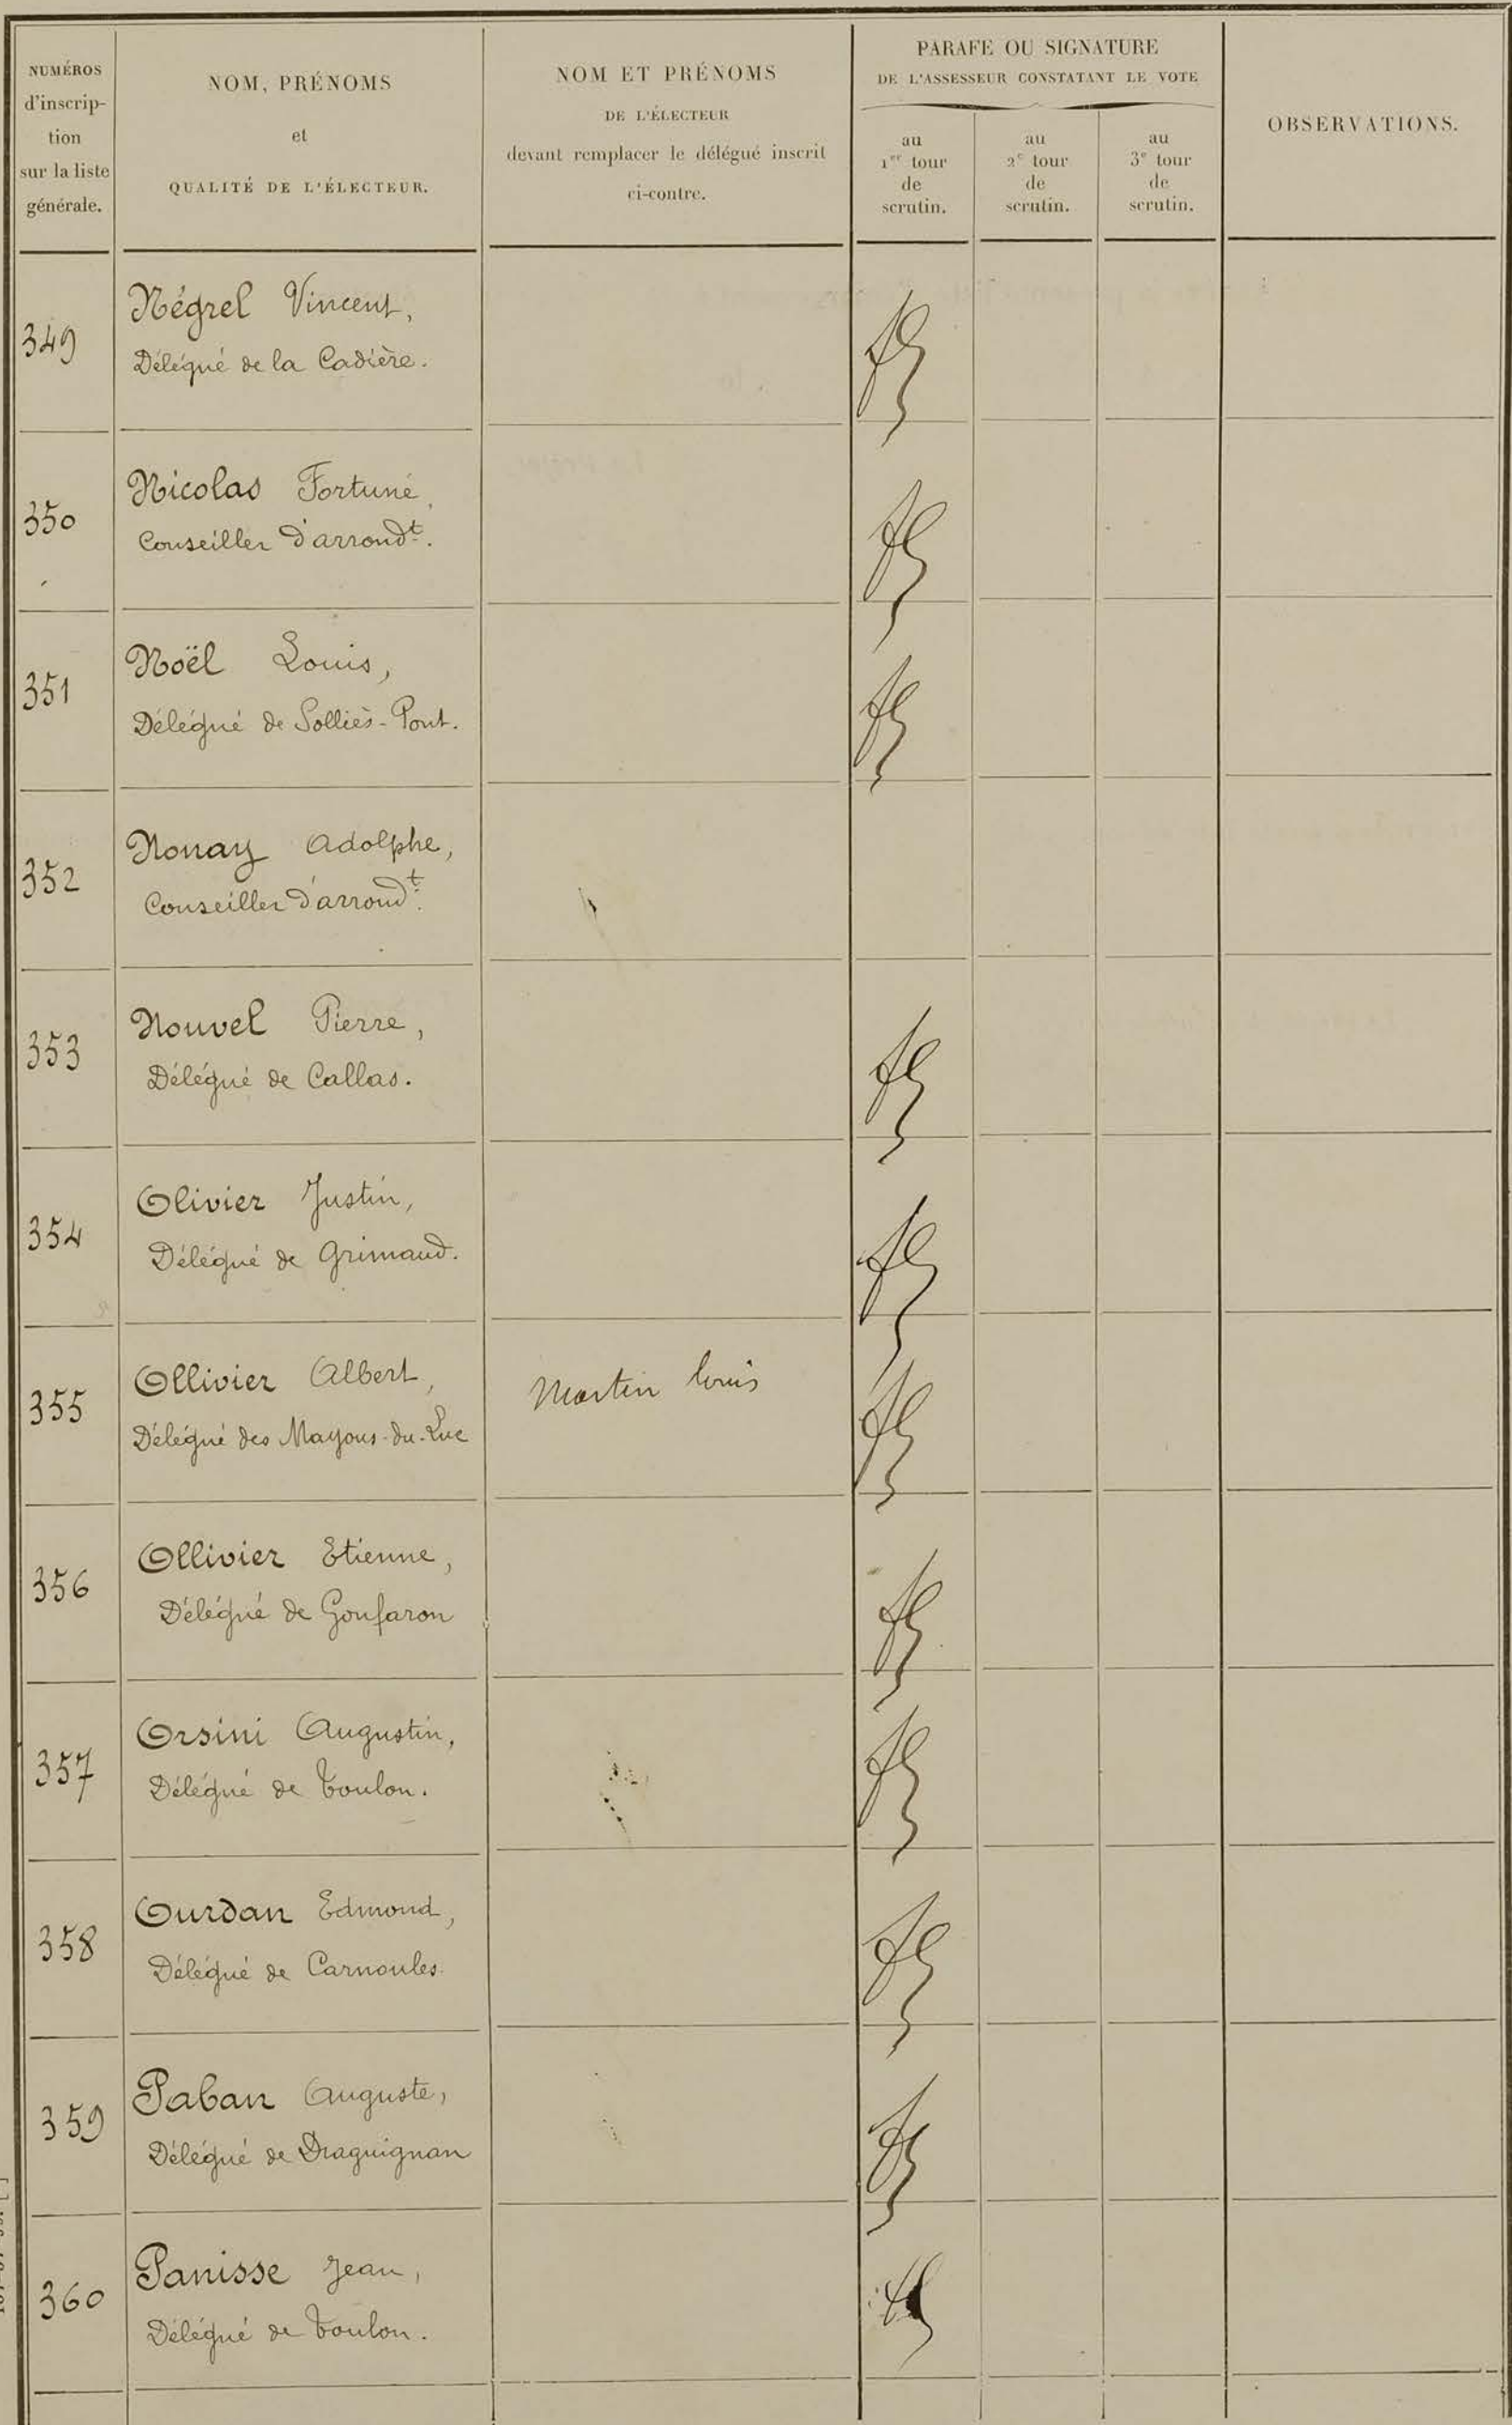 NUMÉROS
d'inscrip-
tion
sur la liste
générale.
NOM, PRÉNOMS
et
QUALITÉ DE L'ÉLECTEUR.
NOM ET PRÉNOMS
DE L'ÉLECTEUR
devant remplacer le délégué inscrit
ci-contre.
PARAFE OU SIGNATURE
DE L'ASSESSEUR CONSTATANT LE VOTE
au
1er tour
de
scrutin.
au
2e tour
de
scrutin.
au
3e tour
de
scrutin.
OBSERVATIONS.
349
Négrel Vincent,
Délégué de la Cadière.
350
Nicolas Fortuné,
Conseiller d'arrondt.
351
Noël Louis,
Délégué de Solliès-Pont.
352
Nonay Adolphe,
Conseiller d'arrondt.
353
Nouvel Pierre,
Délégué de Callas.
354
Olivier Justin,
Délégué de Grimaud.
355
Ollivier Albert,
Délégué des Mayons-du-Luc
Martin Louis
356
Ollivier Etienne,
Délégué de Gonfaron
357
Orsini Augustin,
Délégué de Toulon.
358
Ourdan Edmond,
Délégué de Carnoules.
359
Paban Auguste,
Délégué de Draguignan
360
Panisse Jean,
Délégué de Toulon.